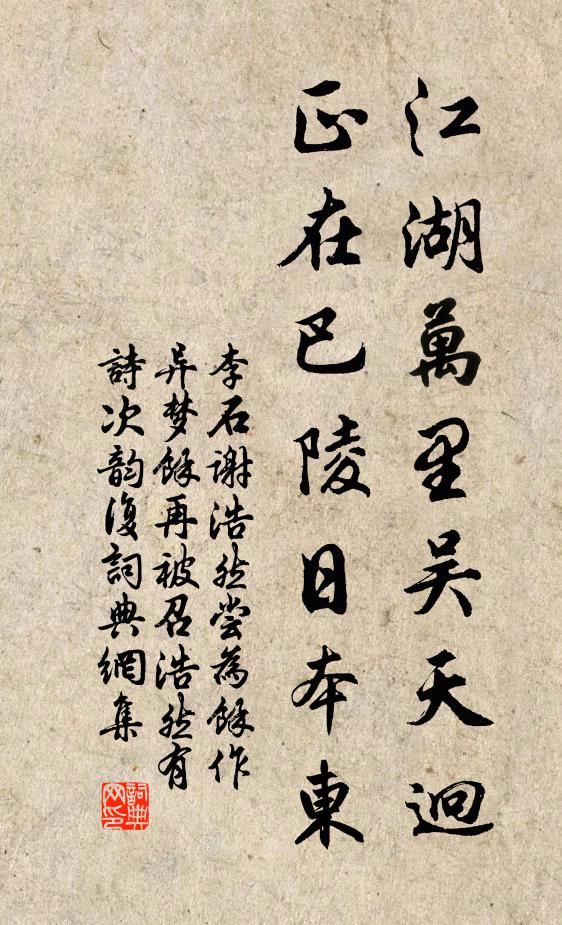 江湖萬里吴天迥
正在巴陵日本東
李石謝浩然尝為餘作
异梦餘再被召浩然有
詩次韵復詞典網集
詞典网印